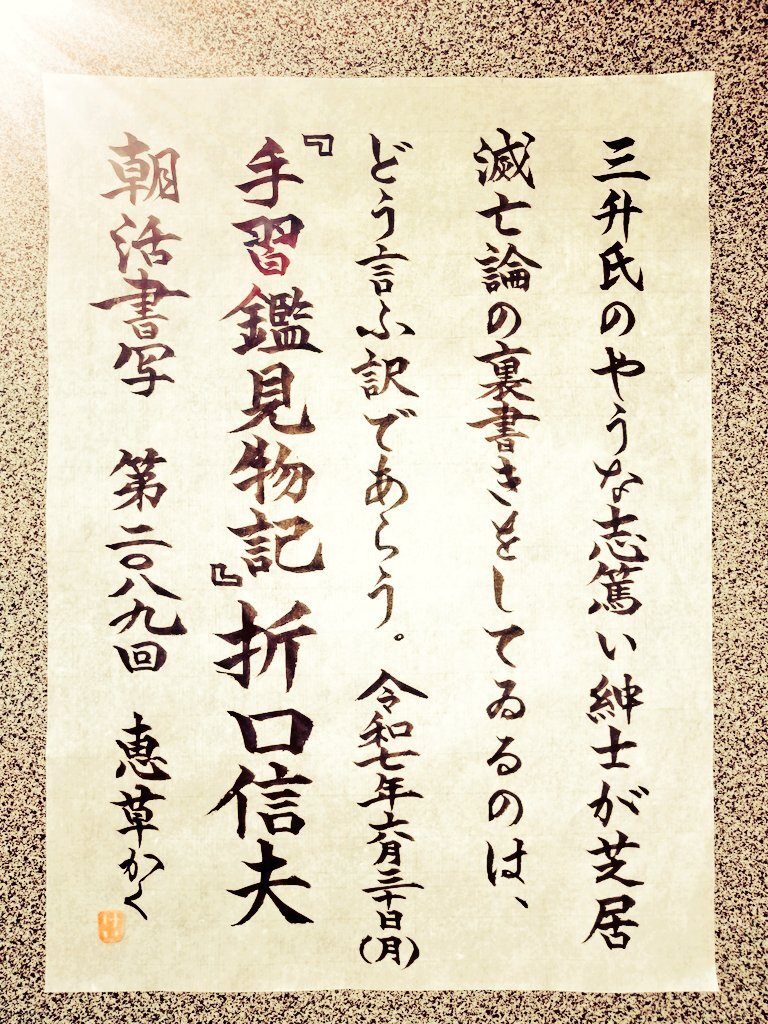 三升氏のやうな志篤い紳士が芝居
滅亡論の裏書きをしてゐるのは、
どう言ふ訳であらう。 令和七年六月三十日(月)
『手習鑑見物記』 折口信夫
朝活書写 第二〇八九回 恵草かく